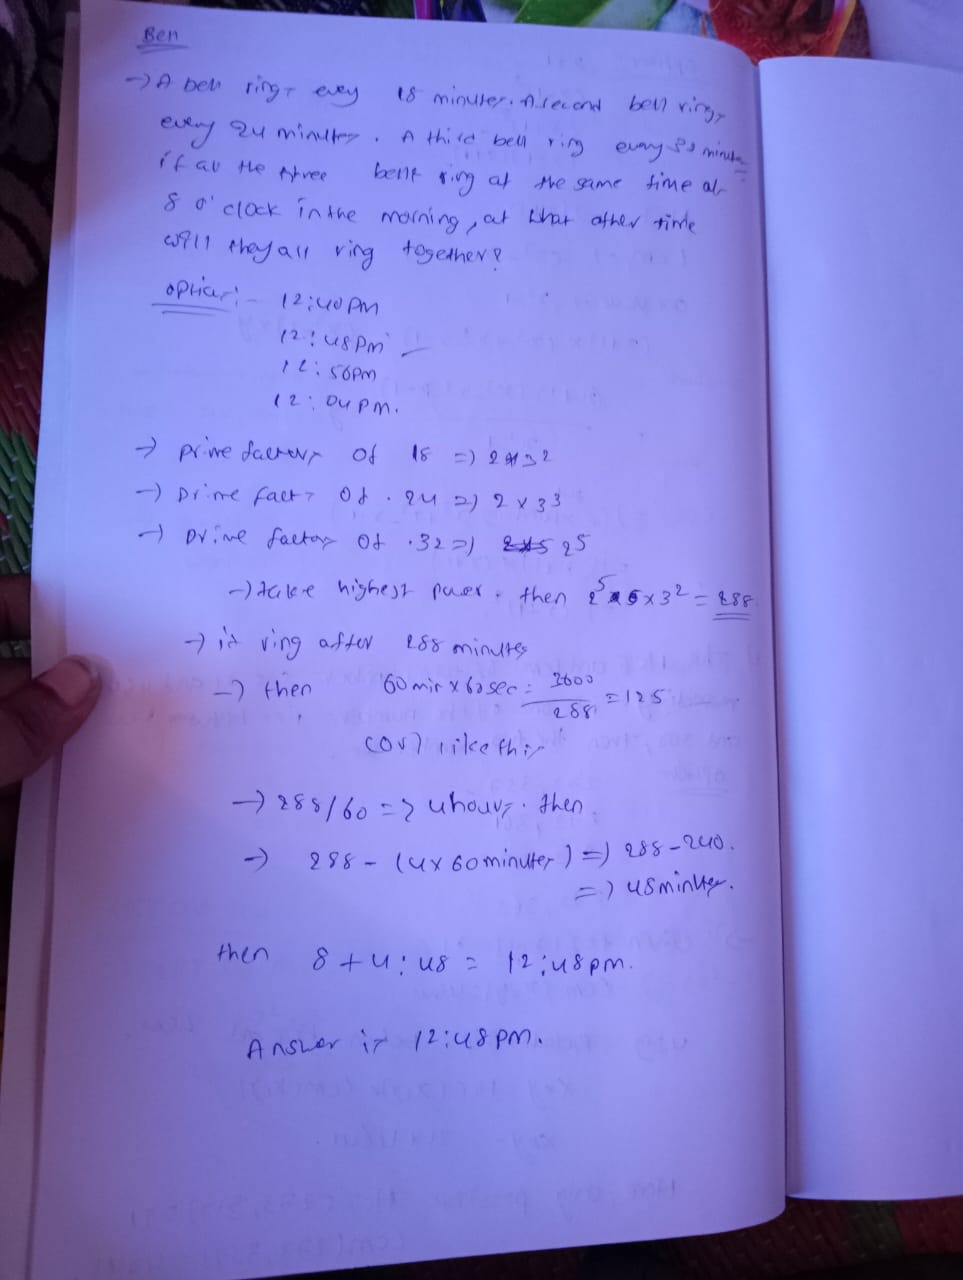 Bell
→ A bell rings every 18 minutes. A second bell rings
every 24 minutes. A third bell ring every 32 minutes
if all the three bells ring at the same time at
8 o'clock in the morning, at what other time
will they all ring together?
option:- 12:40 pm
12:48 pm
12:56 pm
12:04 pm.
→ prime factors of 18 => 2 * 3^2
→ prime fact of . 24 => 2 x 3^3
→ prime factor of . 32 => 2^5
→ take highest power. then 2^5 x 3^2 = 288
→ it ring after 288 minutes
→ then 60 min x 60 sec = 3600/288 = 125
(or) like this
→ 288/60 => 4 hours. then
→ 288 - (4 x 60 minutes) => 288 - 240.
=> 48 minutes.
then 8 + 4 : 48 = 12:48 pm.
Answer is 12:48 pm.